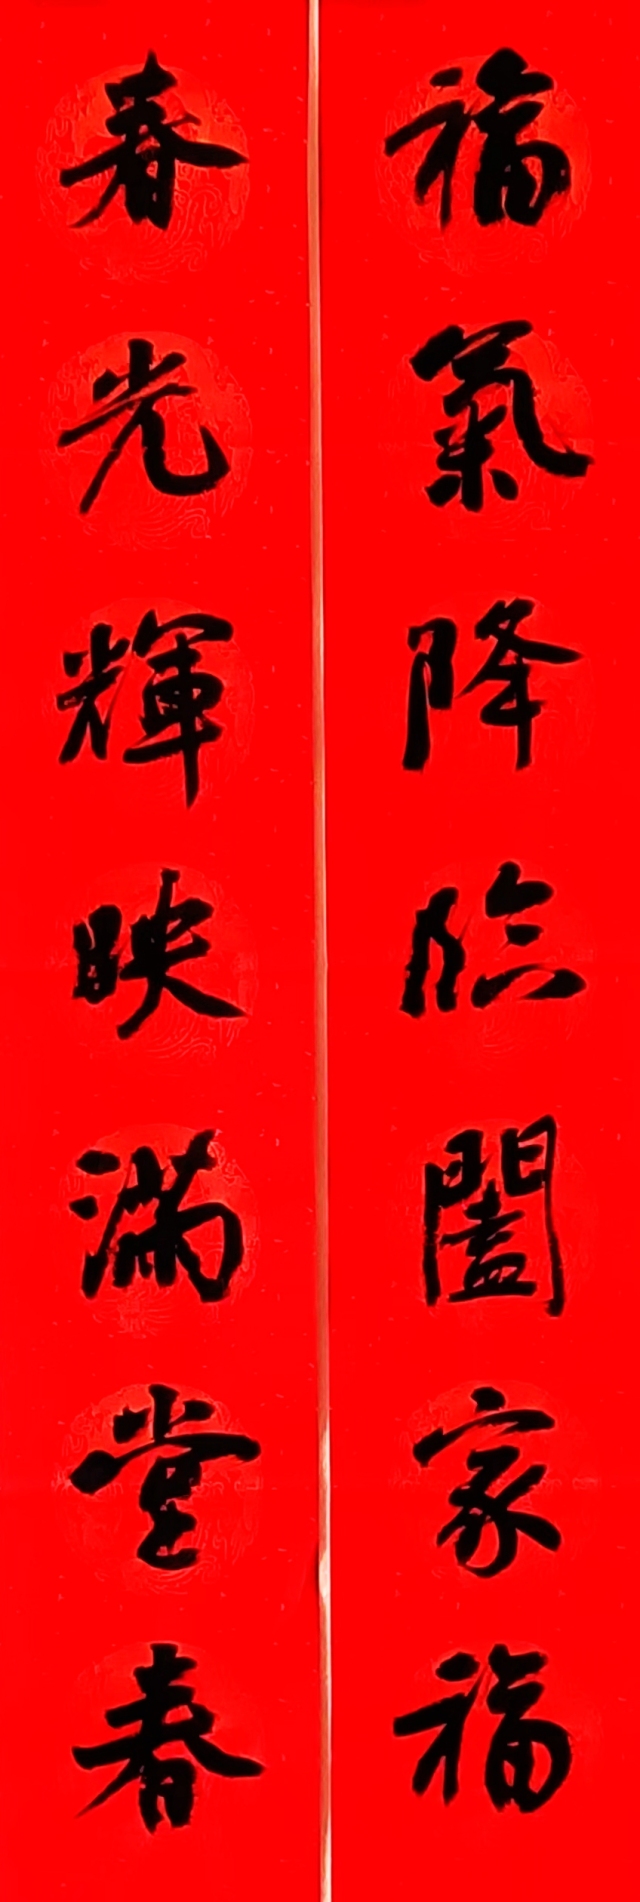 福氣降臨闔家福
春光輝映滿堂春